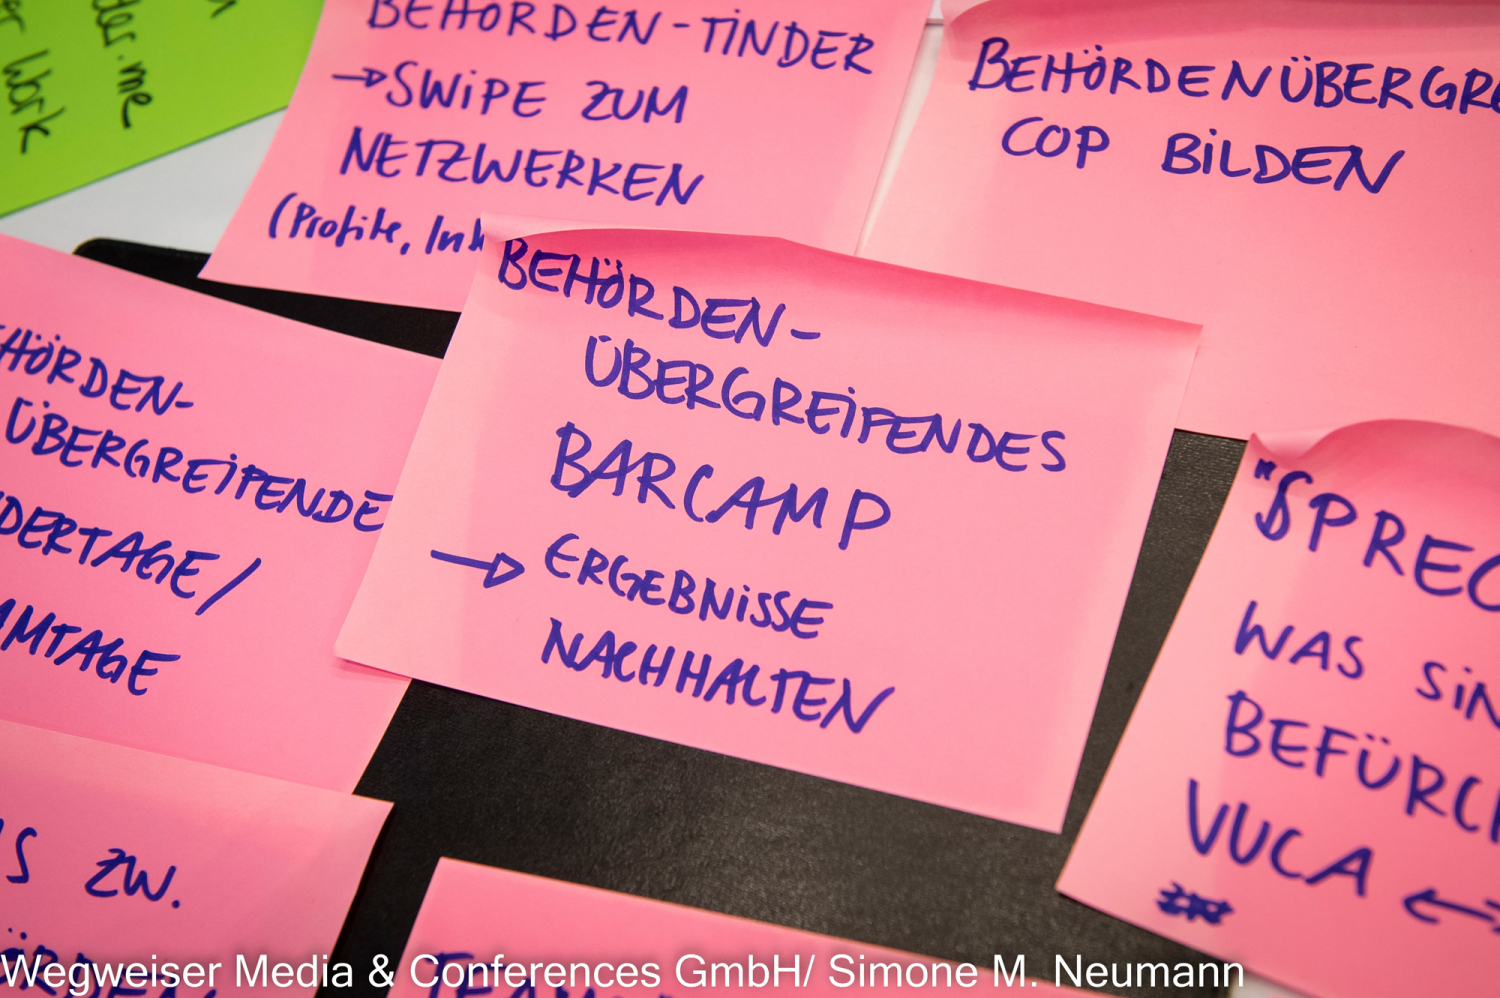 er Work
der.me
BEHÖRDEN-TINDER
→ SWIPE ZUM
NETZWERKEN
(Profile,
BEHÖRDENÜBERGRE
COP BILDEN
HÖRDEN-
ÜBERGREIFENDE
DERTAGE/
AMTAGE
BEHÖRDEN-
ÜBERGREIFENDES
BARCAMP
→ ERGEBNISSE
NACHHALTEN
"SPREC
WAS SIN
BEFÜRCH
VUCA ←
S ZW.
ÖRDEN
TEAM
Wegweiser Media & Conferences GmbH/ Simone M. Neumann